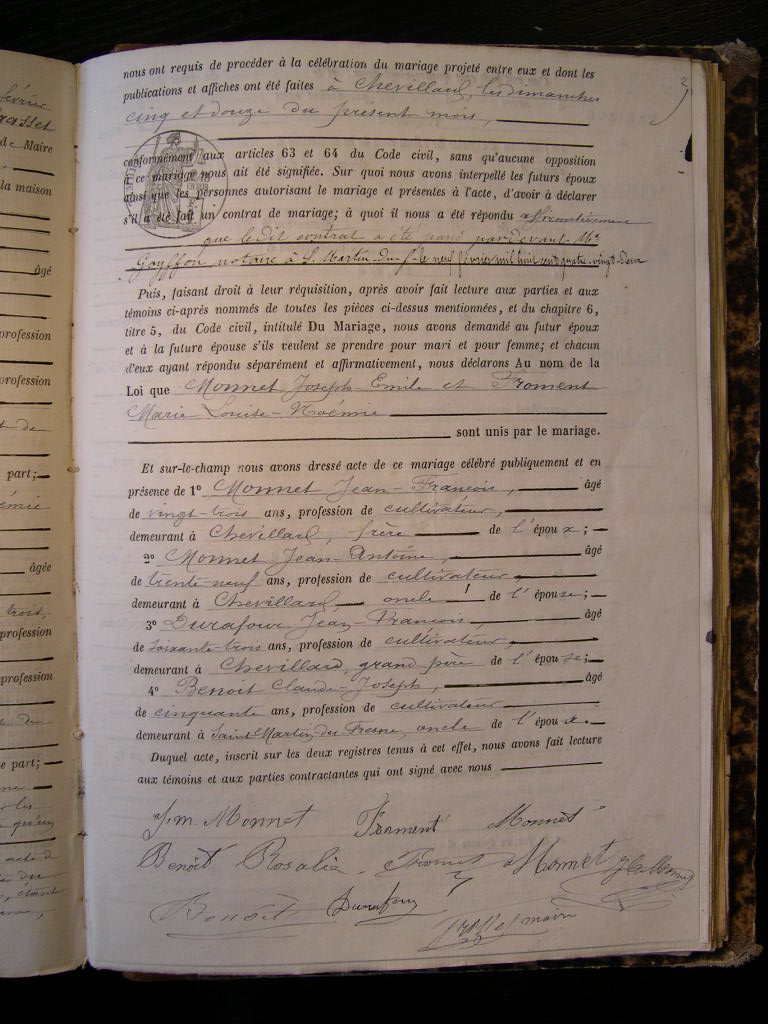 3
nous ont requis de procéder à la célébration du mariage projeté entre eux et dont les
publications et affiches ont été faites à Chevillard, les dimanches
cinq et douze du présent mois,
conformément aux articles 63 et 64 du Code civil, sans qu'aucune opposition
à ce mariage nous ait été signifiée. Sur quoi nous avons interpellé les futurs époux
ainsi que les personnes autorisant le mariage et présentes à l'acte, d'avoir à déclarer
s'il a été fait un contrat de mariage; à quoi il nous a été répondu affirmativement
que le dit contrat a été passé pardevant Me
Goyffon notaire à St Martin-du-f. le neuf février mil huit cent quatre-vingt-deux
Puis, faisant droit à leur réquisition, après avoir fait lecture aux parties et aux
témoins ci-après nommés de toutes les pièces ci-dessus mentionnées, et du chapitre 6,
titre 5, du Code civil, intitulé Du Mariage, nous avons demandé au futur époux
et à la future épouse s'ils veulent se prendre pour mari et pour femme; et chacun
d'eux ayant répondu séparément et affirmativement, nous déclarons Au nom de la
Loi que Monnet Joseph-Emile et Froment
Marie Louise-Noémie
sont unis par le mariage.
Et sur-le-champ nous avons dressé acte de ce mariage célébré publiquement et en
présence de 1º Monnet Jean-François, âgé
de vingt-trois ans, profession de cultivateur,
demeurant à Chevillard, frère de l'époux;
2º Monnet Jean-Antoine, âgé
de trente-neuf ans, profession de cultivateur
demeurant à Chevillard oncle de l'épouse;
3º Durafour Jean-François, âgé
de soixante-trois ans, profession de cultivateur,
demeurant à Chevillard, grand père de l'épouse;
4º Benoit Claude-Joseph, âgé
de cinquante ans, profession de cultivateur
demeurant à Saint-Martin-du Fresne, oncle de l'épou
Duquel acte, inscrit sur les deux registres tenus à cet effet, nous avons fait lecture
aux témoins et aux parties contractantes qui ont signé avec nous
J. m. Monnet Froment Monnet
Benoit Rosalie Froment Monnet
Benoit Durafour
maire
de Maire
la maison
âgé
profession
profession
part;
âgée
profession
profession
e part;